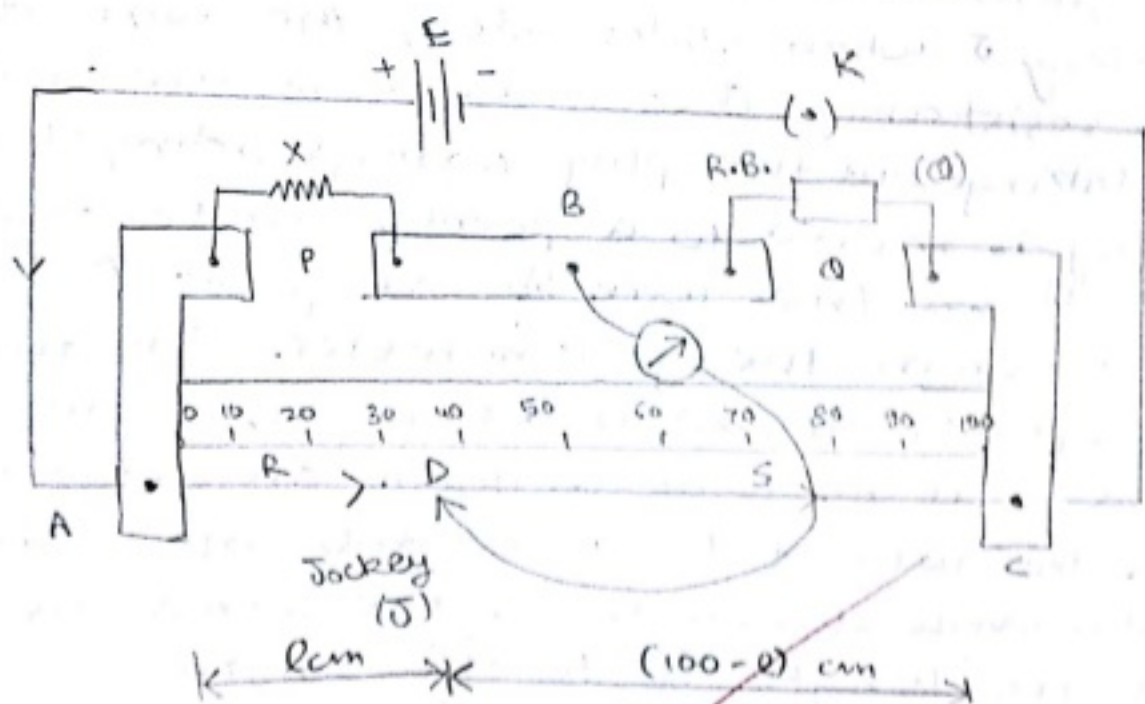 E
+ -
K
X
R.B. (Q)
B
P
Q
0 10 20 30 40 50 60 70 80 90 100
R D S
A
C
Jockey
(J)
l cm (100-l) cm